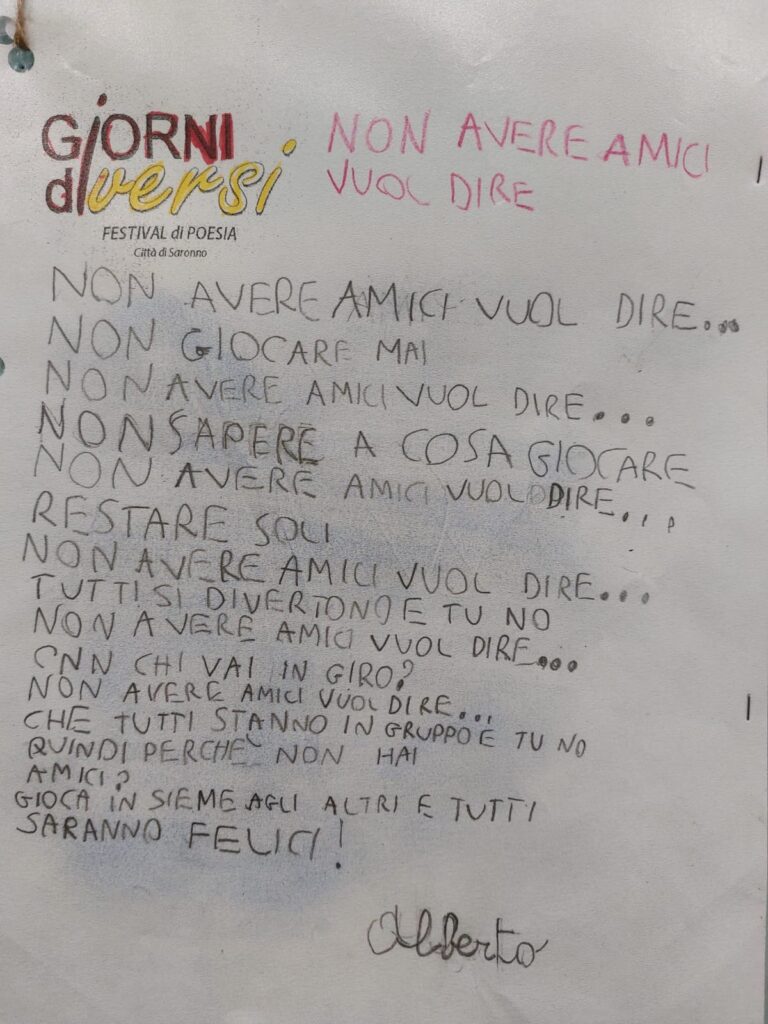 GiORNI
diversi
FESTIVAL di POESIA
Città di Saronno
NON AVERE AMICI
VUOL DIRE
NON AVERE AMICI VUOL DIRE...
NON GIOCARE MAI
NON AVERE AMICI VUOL DIRE...
NON SAPERE A COSA GIOCARE
NON AVERE AMICI VUOL DIRE...
RESTARE SOLI
NON AVERE AMICI VUOL DIRE...
TUTTI SI DIVERTONO E TU NO
NON AVERE AMICI VUOL DIRE...
CNN CHI VAI IN GIRO?
NON AVERE AMICI VUOL DIRE...
CHE TUTTI STANNO IN GRUPPO E TU NO
QUINDI PERCHÈ NON HAI
AMICI?
GIOCA IN SIEME AGLI ALTRI E TUTTI
SARANNO FELICI!
Alberto